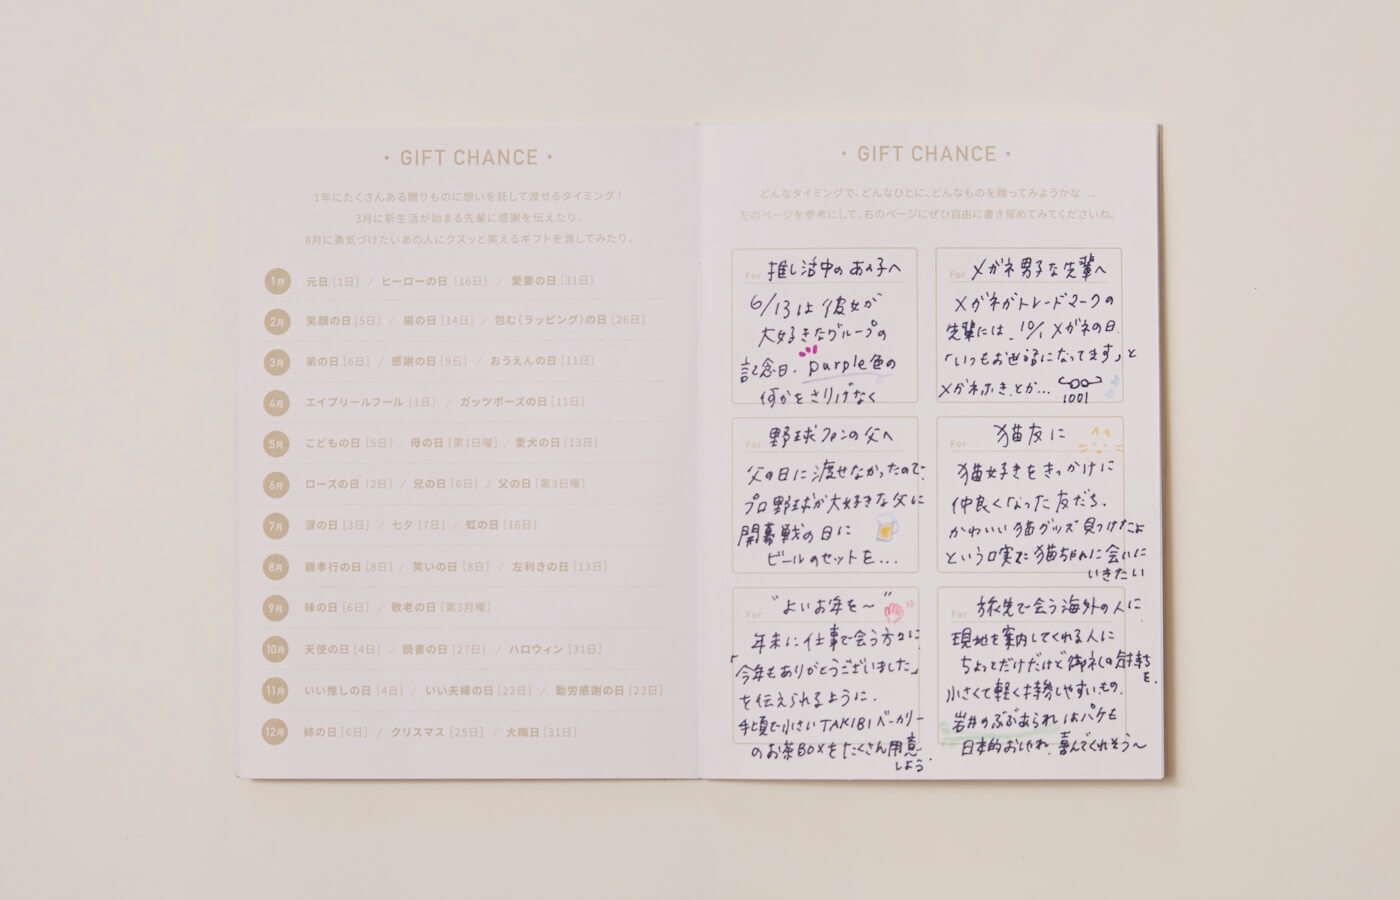 • GIFT CHANCE •
1年にたくさんある贈りものに想いを託して渡せるタイミング！
3月に新生活が始まる先輩に感謝を伝えたり、
8月に勇気づけたいあの人にクスッと笑えるギフトを渡してみたり。
1月 元日［1日］ / ヒーローの日［16日］ / 愛妻の日［31日］
2月 笑顔の日［5日］ / 猫の日［14日］ / 包む（ラッピング）の日［26日］
3月 弟の日［6日］ / 感謝の日［9日］ / おうえんの日［11日］
4月 エイプリールフール［1日］ / ガッツポーズの日［11日］
5月 こどもの日［5日］ / 母の日［第1日曜］ / 愛犬の日［13日］
6月 ローズの日［2日］ / 兄の日［6日］ / 父の日［第3日曜］
7月 涙の日［3日］ / 七夕［7日］ / 虹の日［16日］
8月 親孝行の日［8日］ / 笑いの日［8日］ / 左利きの日［13日］
9月 妹の日［6日］ / 敬老の日［第3月曜］
10月 天使の日［4日］ / 読書の日［27日］ / ハロウィン［31日］
11月 いい推しの日［4日］ / いい夫婦の日［22日］ / 勤労感謝の日［23日］
12月 姉の日［6日］ / クリスマス［25日］ / 大晦日［31日］
• GIFT CHANCE •
どんなタイミングで、どんなひとに、どんなものを贈ってみようかな …
左のページを参考にして、右のページにぜひ自由に書き留めてみてくださいね。
For 推し活中のあの子へ
6/13は彼女が
大好きなグループの
記念日。purple色の
何かをさりげなく
For メガネ男子な先輩へ
メガネがトレードマークの
先輩には、10/1メガネの日
「いつもお世話になってます」と
メガネふきとか…
1001
For 野球ファンの父へ
父の日に渡せなかったので
プロ野球が大好きな父に
開幕戦の日に
ビールのセットを…
For 猫友に
猫好きをきっかけに
仲良くなった友だち。
かわいい猫グッズ見つけたよ
という口実で猫ちゃんに会いに
いきたい
For “よいお年を～”
年末に仕事で会う方々に
「今年もありがとうございました」
を伝えられるように。
手頃で小さいTAKIBIベーカリー
のお茶BOXをたくさん用意
しよう
For 旅先で会う海外の人に
現地を案内してくれる人に
ちょっとだけだけど御礼の気持ち
を。
小さくて軽く持参しやすいもの。
岩井のぶぶあられはパケも
日本的おしゃれ。喜んでくれそう～